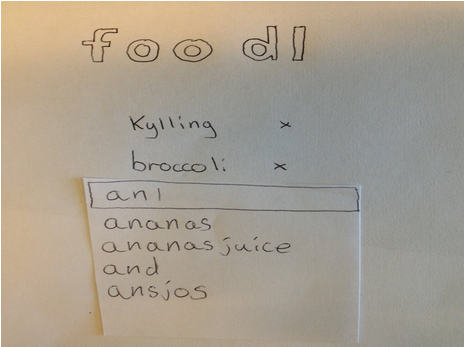 foodl
Kylling x
broccoli x
an|
ananas
ananasjuice
and
ansjos